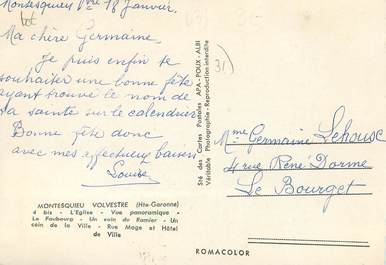 Montesquieu Vve 18 Janvier.
tot
Ma chère Germaine,
Je puis enfin te
souhaiter une bonne fête
ayant trouvé le nom de
ta sainte sur le calendrier
Bonne fête donc
avec mes affectueux baisers
Louise
MONTESQUIEU VOLVESTRE (Hte-Garonne)
4 bis - L'Eglise - Vue panoramique -
Le Faubourg - Un coin du Ramier - Un
coin de la Ville - Rue Mage et Hôtel
de Ville
Sté des Cartes Postales APA-POUX-ALBI
Véritable Photographie - Reproduction interdite
31
Mme Germaine
4 rue René Dorme
Le Bourget
ROMACOLOR